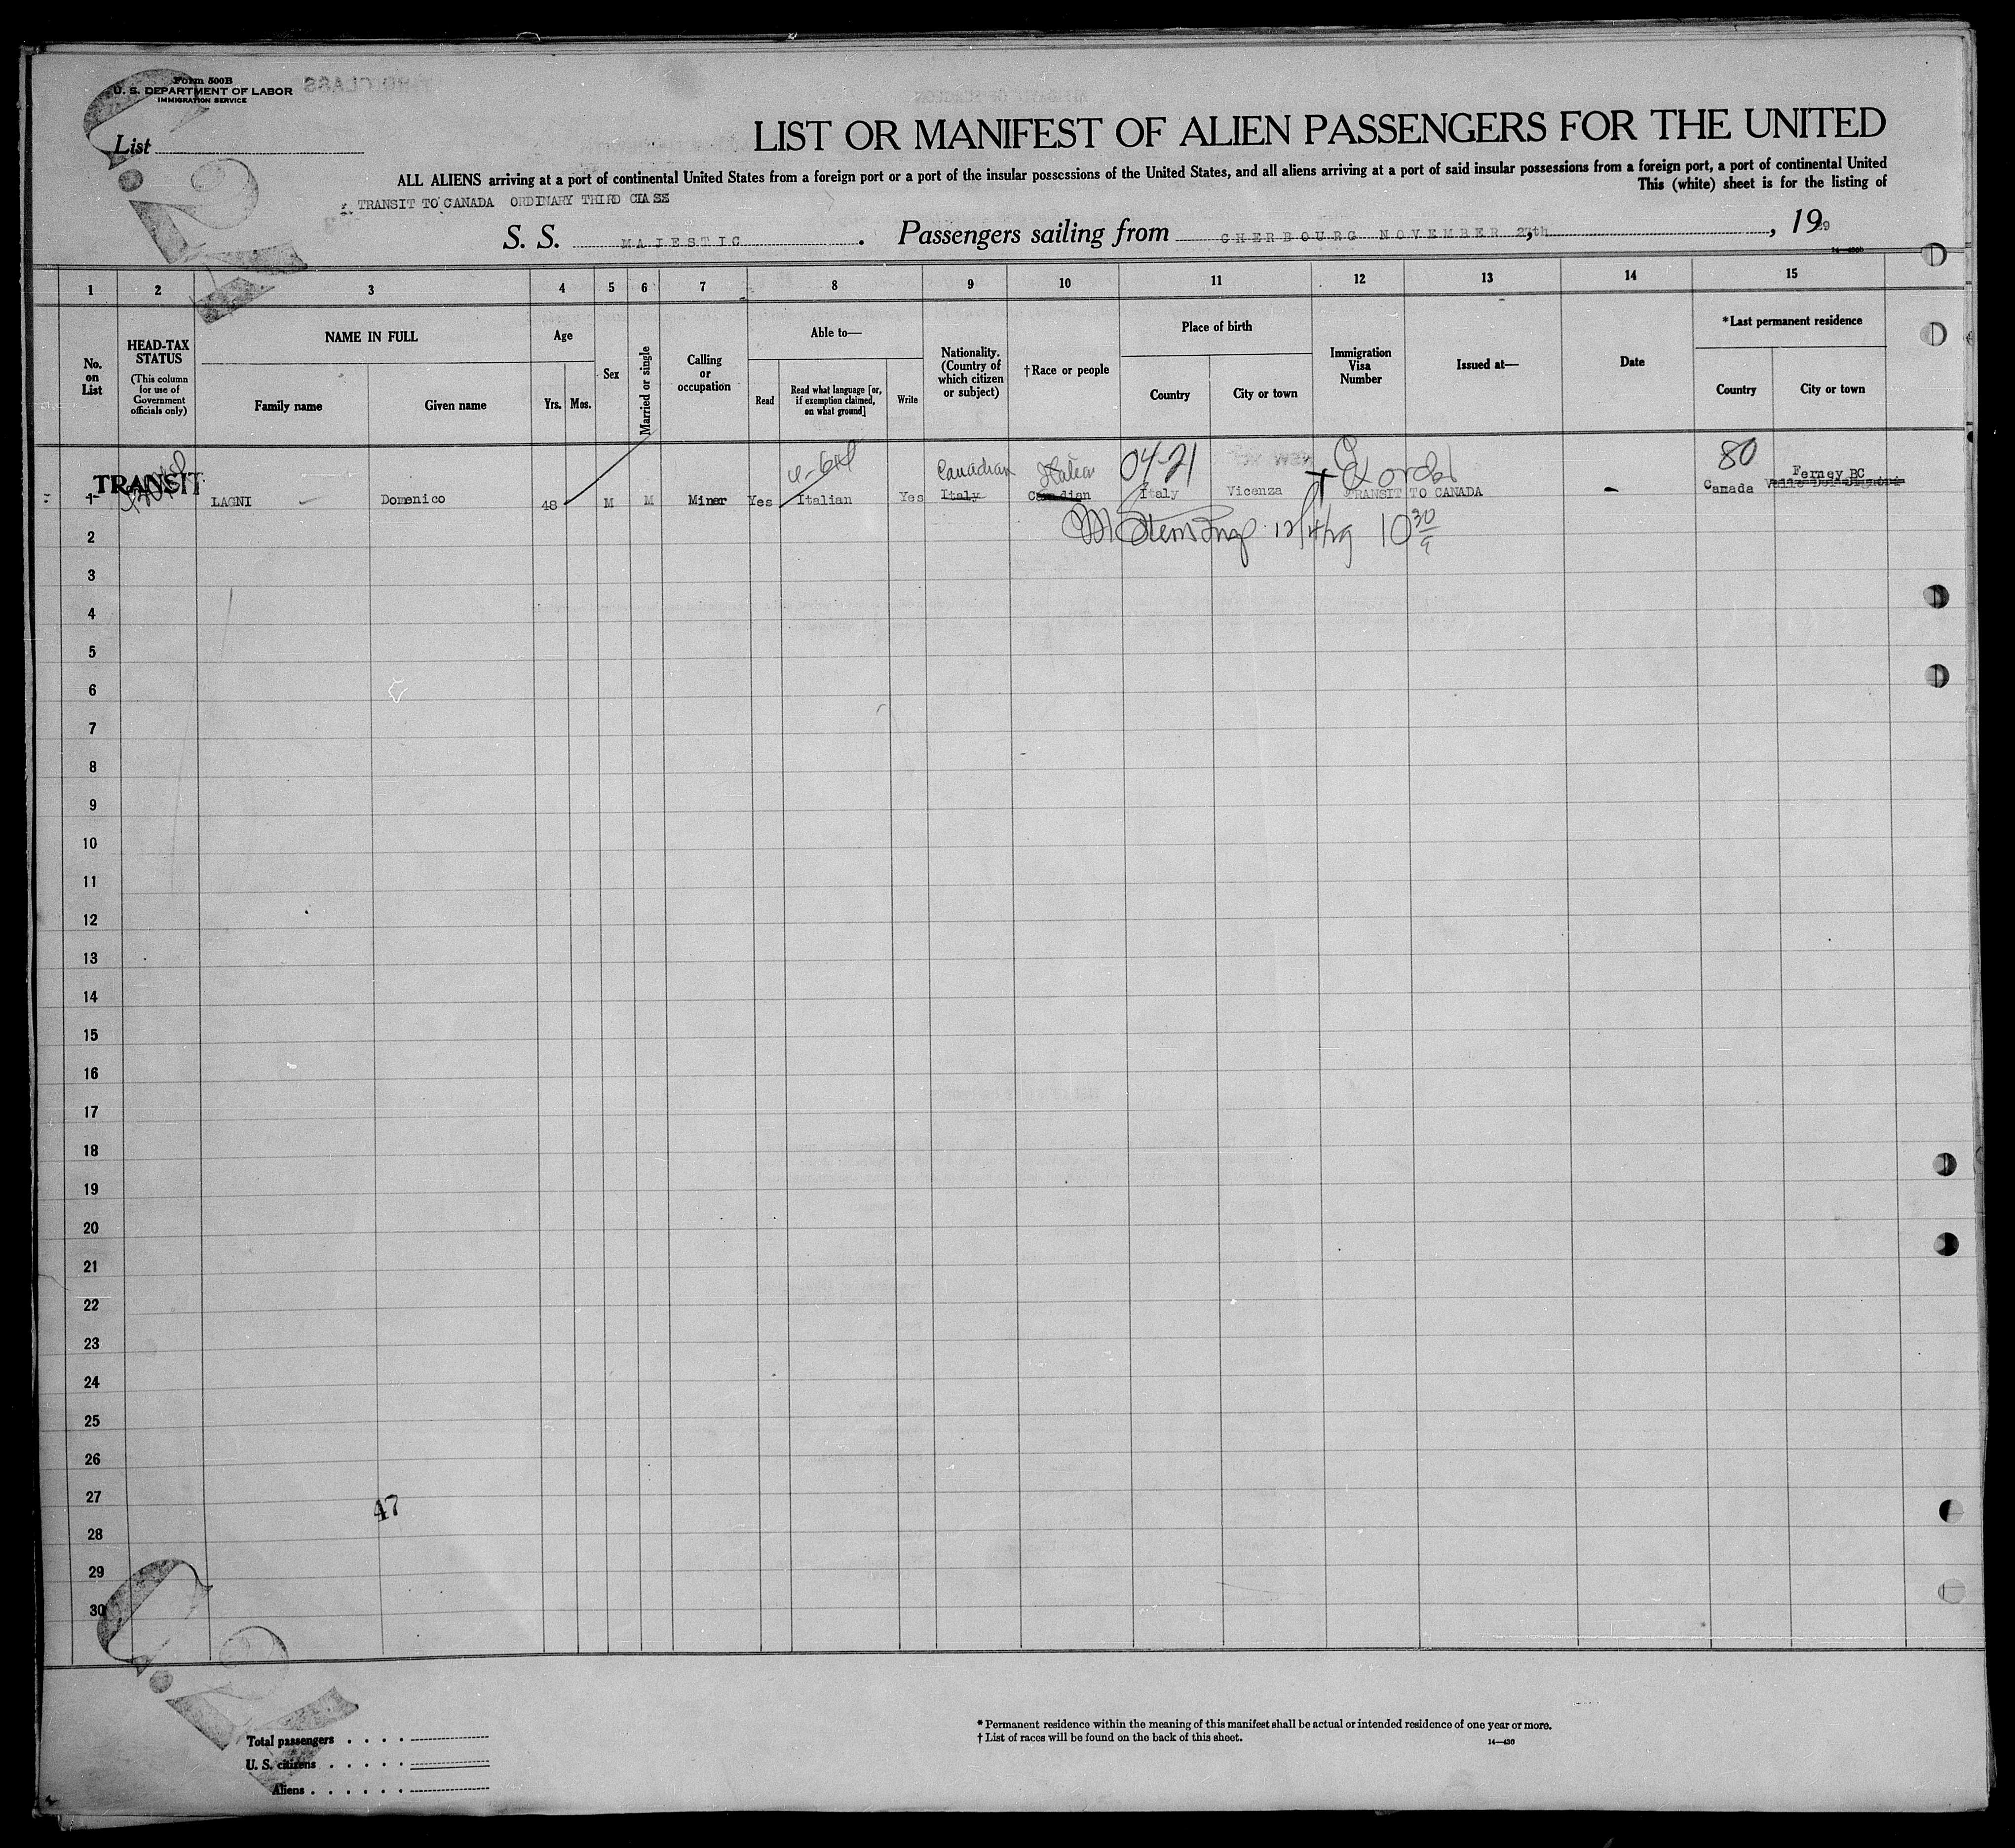 Form 500B
U. S. DEPARTMENT OF LABOR
IMMIGRATION SERVICE
THIRD CLASS
List
LIST OR MANIFEST OF ALIEN PASSENGERS FOR THE UNITED
ALL ALIENS arriving at a port of continental United States from a foreign port or a port of the insular possessions of the United States, and all aliens arriving at a port of said insular possessions from a foreign port, a port of continental United
This (white) sheet is for the listing of
TRANSIT TO CANADA ORDINARY THIRD CLASS
S. S. MAJESTIC. Passengers sailing from CHERBOURG NOVEMBER 27th, 1929
1 2 3 4 5 6 7 8 9 10 11 12 13 14 15
No. on List
HEAD-TAX STATUS
(This column for use of Government officials only)
NAME IN FULL
Family name
Given name
Age
Yrs. Mos.
Sex
Married or single
Calling or occupation
Able to—
Read
Read what language [or, if exemption claimed, on what ground]
Write
Nationality. (Country of which citizen or subject)
†Race or people
Place of birth
Country
City or town
Immigration Visa Number
Issued at—
Date
*Last permanent residence
Country
City or town
Canadian Italian 04-21 80
TRANSIT Ferney BC
1 LAGNI Domenico 48 M M Miner Yes Italian Yes Italy Canadian Italy Vicenza TRANSIT TO CANADA - Canada
12/4/29 10 30
2
3
4
5
6
7
8
9
10
11
12
13
14
15
16
17
18
19
20
21
22
23
24
25
26
27
47
28
29
30
Total passengers
U. S. citizens
Aliens
* Permanent residence within the meaning of this manifest shall be actual or intended residence of one year or more.
† List of races will be found on the back of this sheet.
14—436